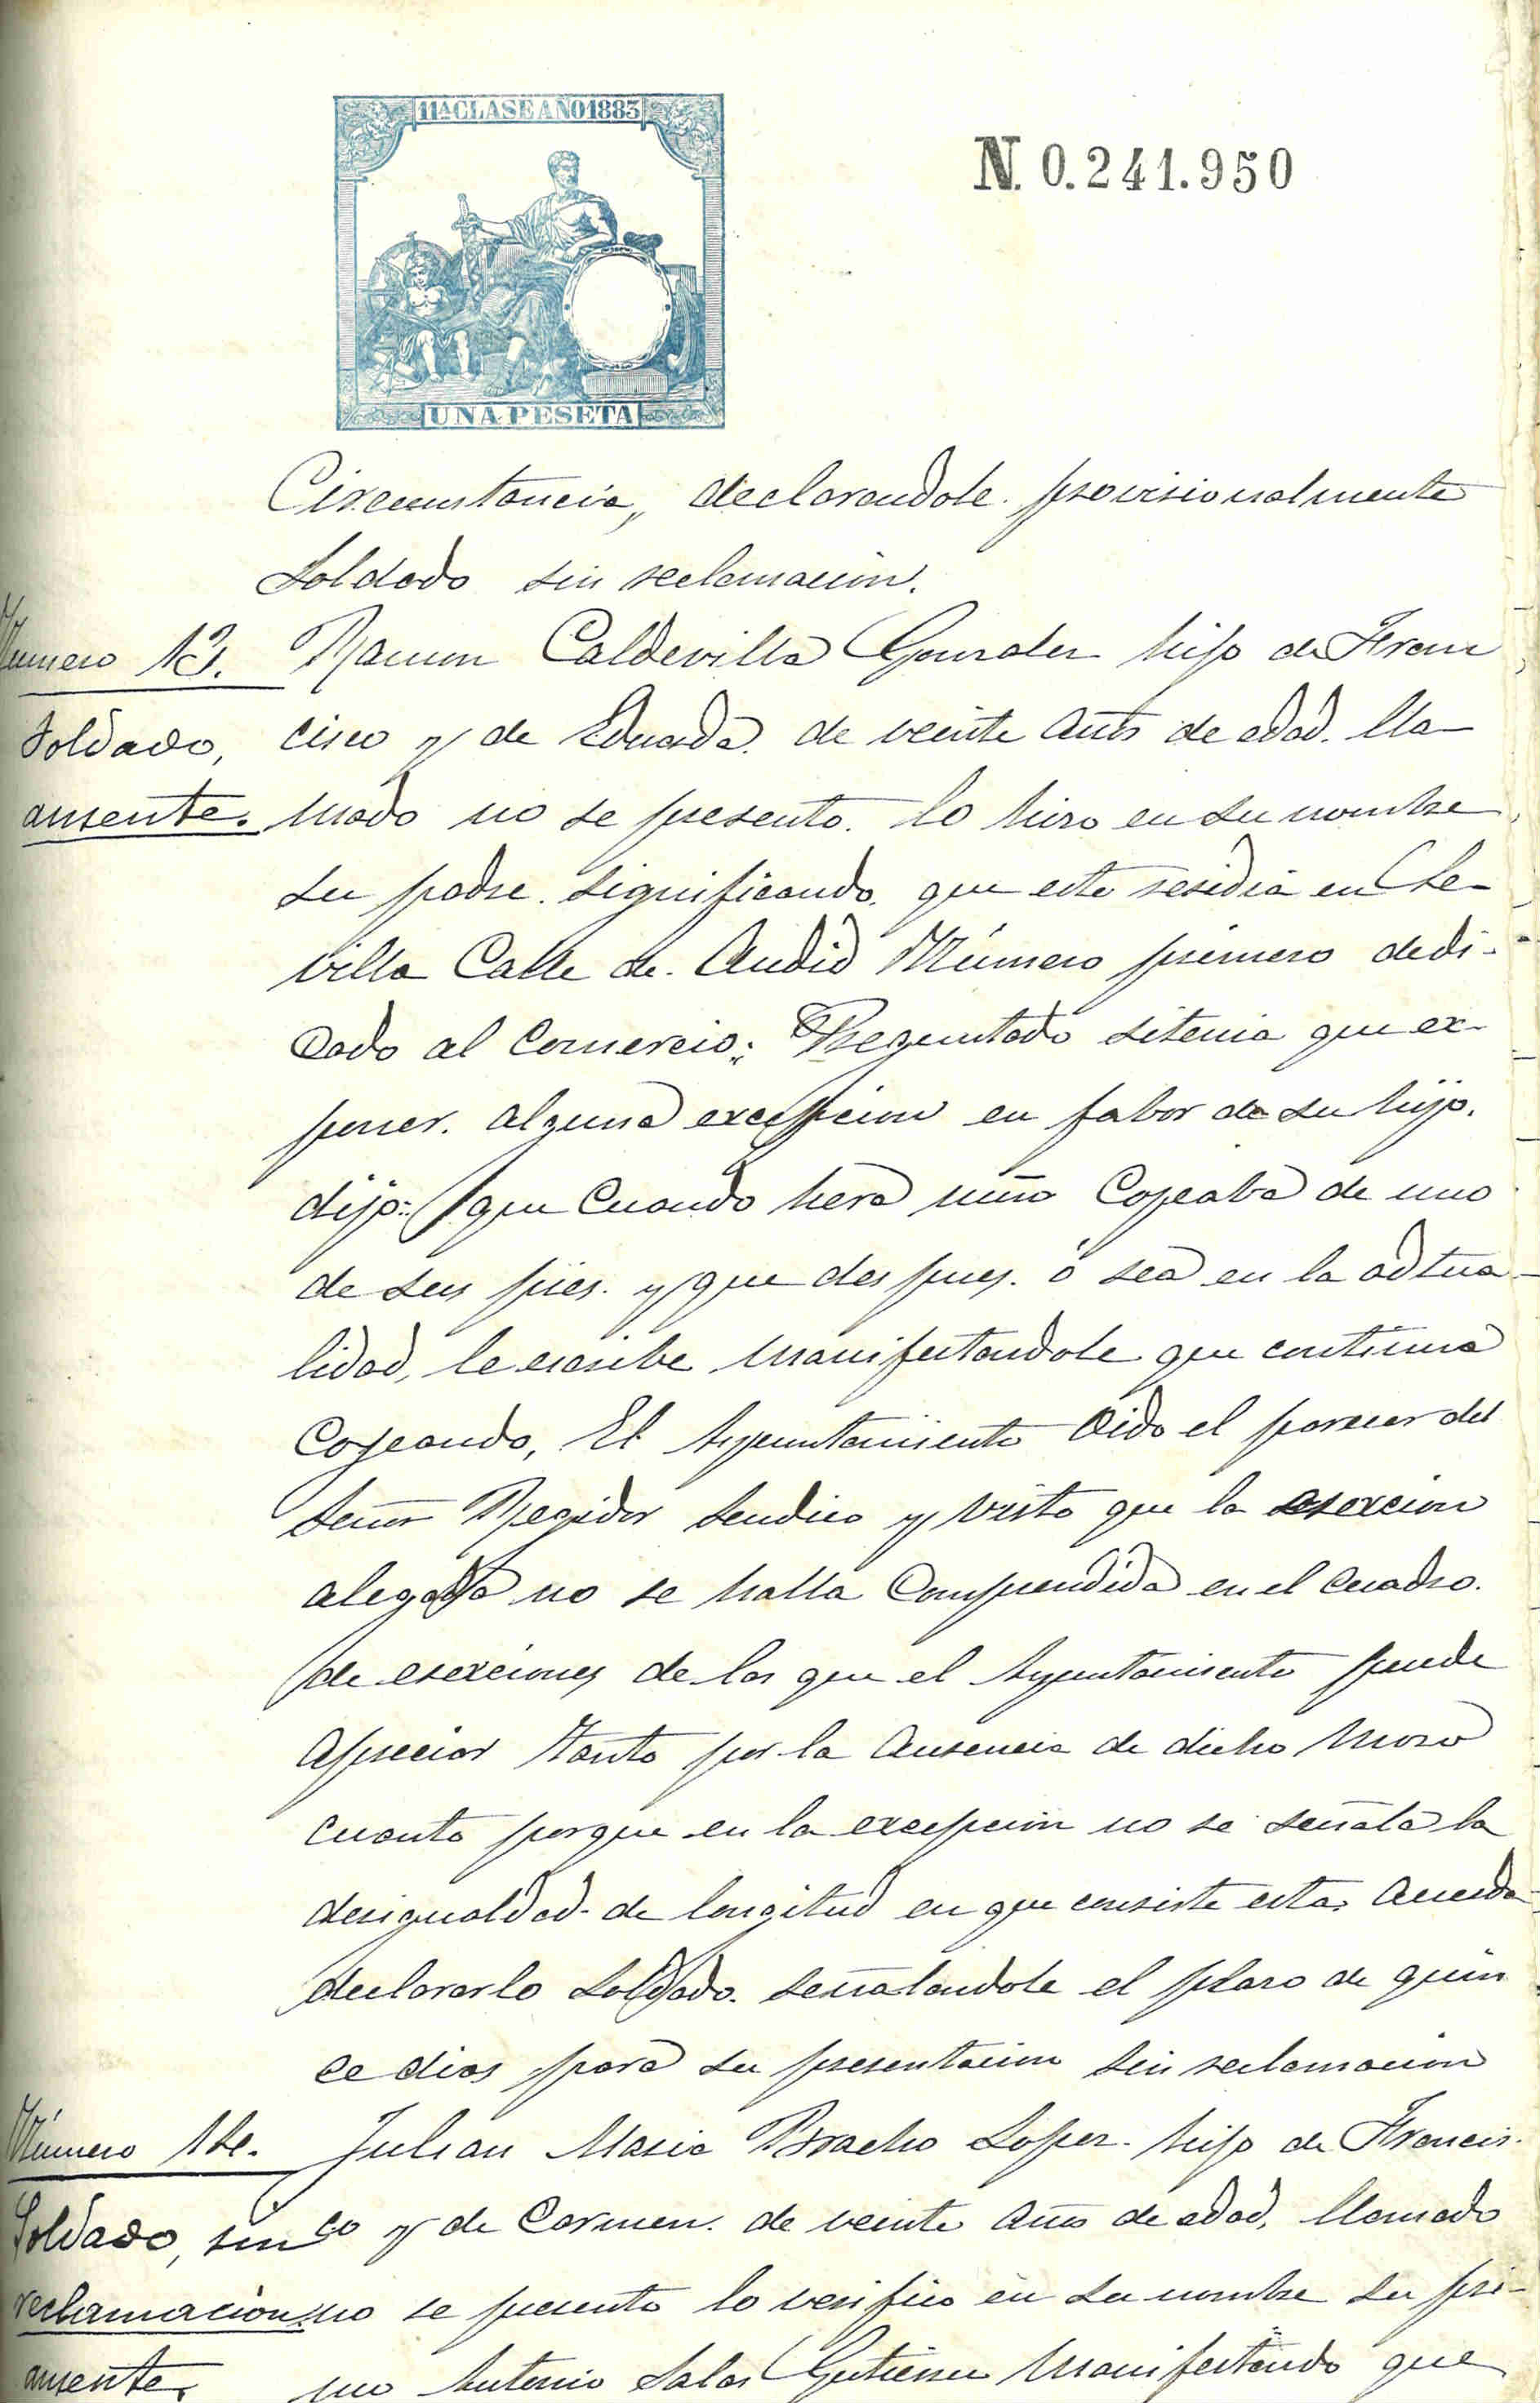 11ª CLASE AÑO 1883
N. 0.241.950
UNA PESETA
Circunstancia, declarandole provisionalmente
Soldado sin reclamacion.
Numero 13. Ramon Caldevilla Gonzalez hijo de Fran
Soldado, cisco y de Eduarda. de veinte años de edad. lla-
ausente. mado no se presento. lo hizo en su nombre
su padre. significando. que este residia en Se-
villa Calle de. Número primero dedi-
cado al Comercio; Preguntado si tenia que ex-
poner. alguna excepcion en fabor de su hijo.
dijo: que cuando hera niño Cojeaba de uno
de sus pies. y que despues. ó sea en la actua-
lidad, le escribe manifestandole que continua
Cojeando, El Ayuntamiento Oido el parecer del
Señor Regidor Sendico y visto que la esexcion
alegada no se halla Comprendida en el Cuadro.
de esexciones de las que el Ayuntamiento puede
apreciar tanto por la Ausencia de dicho mozo
cuanto porque en la excepcion no se señala la
desigualdad de longitud en que consiste esta. Acuerda
declararlo Soldado. señalandole el plazo de quin
ce dias para su presentacion sin reclamacion
Número 14. Julian Maria Bracho Lopez. hijo de Francis.
Soldado, sin co y de Carmen. de veinte años de edad, llamado
reclamacion. no se presento lo verifico en su nombre su pri-
ausente. mo Antonio Salas Gutierrez manifestando que